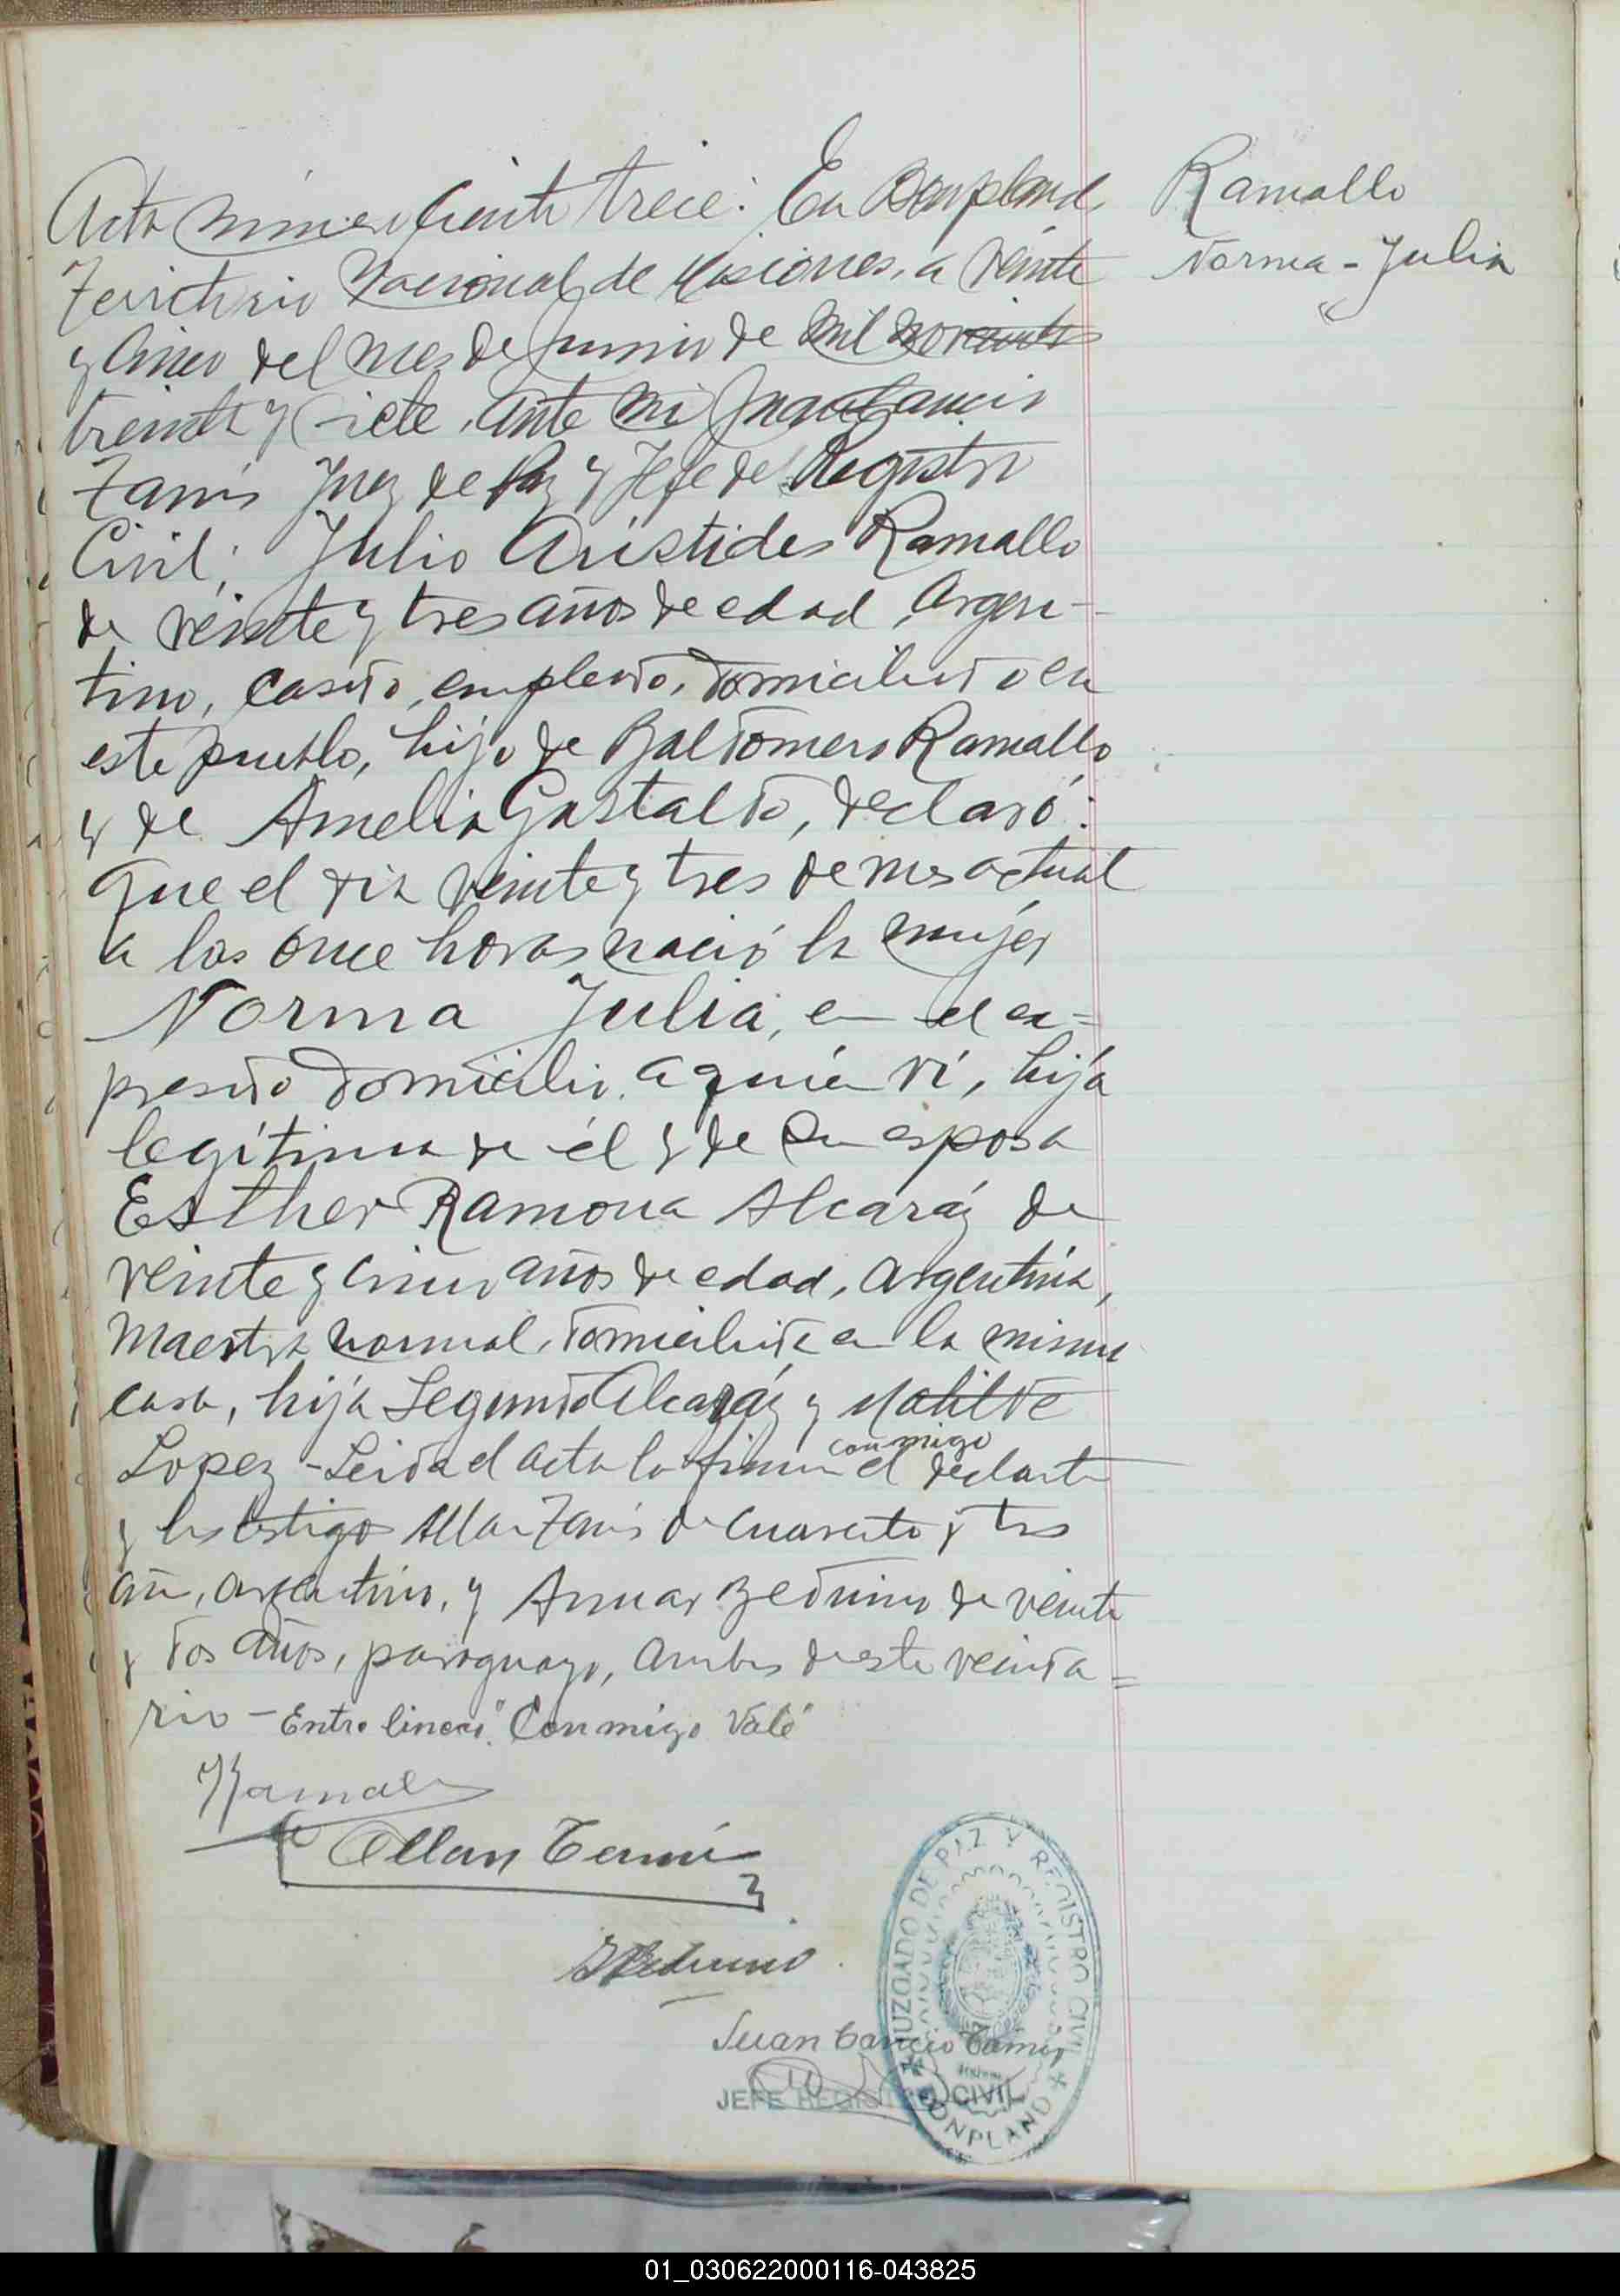 Acta número ciento trece: En Bonpland,
Territorio Nacional de Misiones, a veinte
y cinco del mes de Junio de mil novecientos
treinta y siete, ante mi Juan Cancio
Tarnis Juez de Paz y Jefe del Registro
Civil; Julio Aristides Ramallo
de veinte y tres años de edad, argen-
tino, casado, empleado, domiciliado en
este pueblo, hijo de Baldomero Ramallo
y de Amelia Gastaldo, declaró:
Que el dia veinte y tres de mes actual
a las once horas nació la mujer
Norma Julia, en el ex=
presado domicilio, a quién ví, hija
legítima de él y de su esposa
Esther Ramona Alcaráz de
veinte y cinco años de edad, argentina,
Maestra normal, domiciliada en la misma
casa, hija Segundo Alcaráz y Matilde
Lopez - Leida el acta la firman conmigo el declarante
y los testigos Allan de cuarenta y tres
años, argentino, y Anuar Beduino de veinte
y dos años, paraguayo, ambos de este vecinda=
rio - Entre lineas "Conmigo Vale"
Ramallo
Norma - Julia
Ramallo
Allan
Beduino
Juan Cancio
JEFE REGISTRO CIVIL
JUZGADO DE PAZ Y REGISTRO CIVIL
BONPLAND
01_030622000116-043825